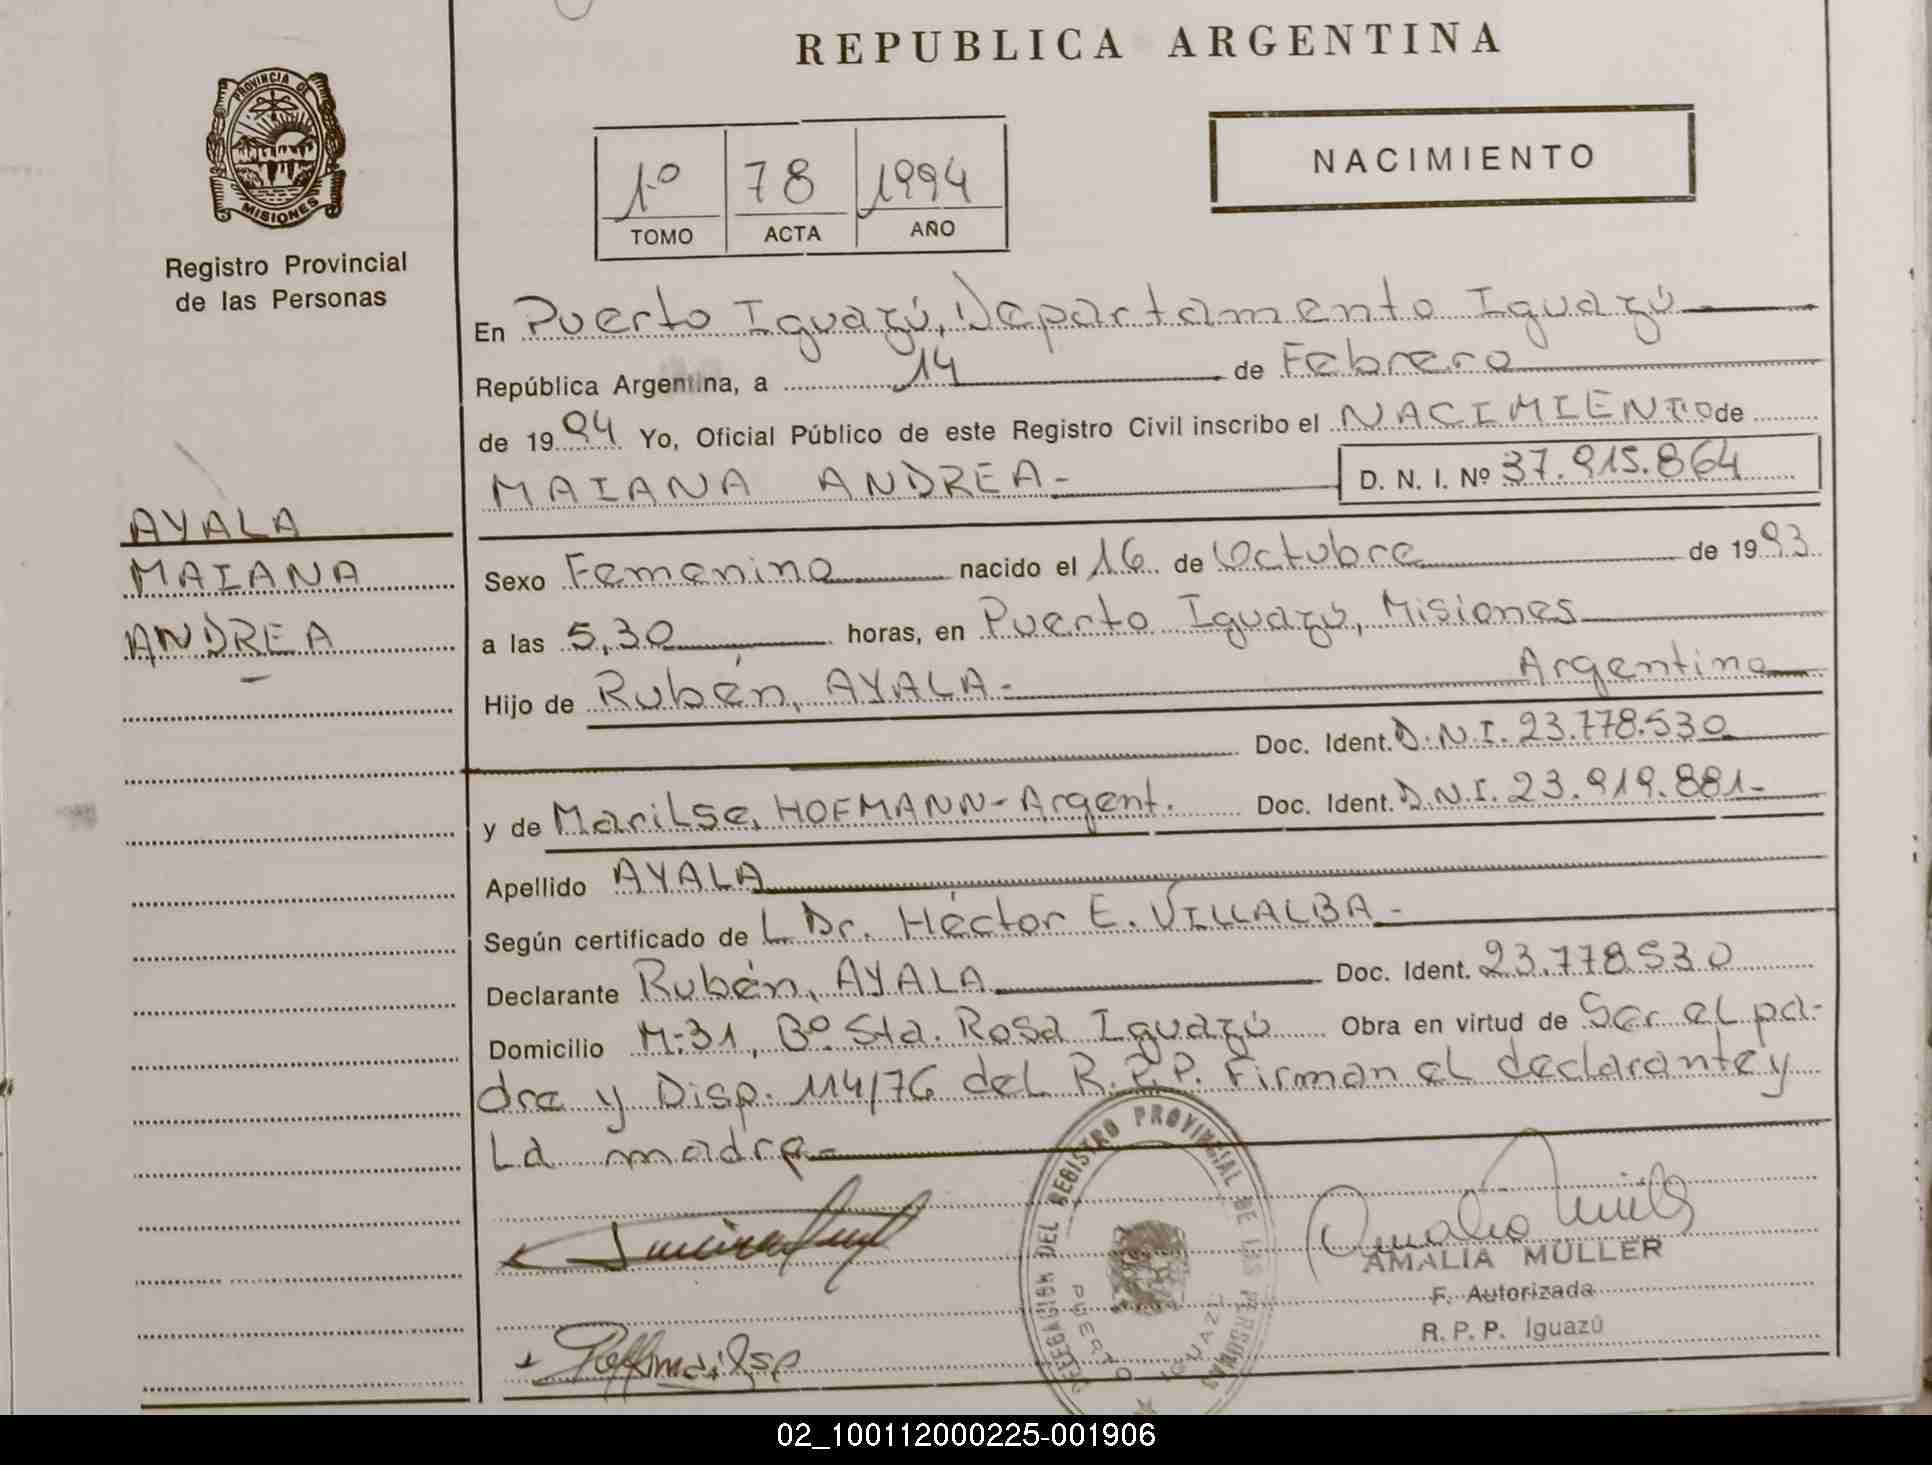 REPUBLICA ARGENTINA
PROVINCIA DE
MISIONES
Registro Provincial
de las Personas
1º 78 1994
TOMO ACTA AÑO
NACIMIENTO
En Puerto Iguazú, Departamento Iguazú
República Argentina, a 14 de Febrero
de 1994 Yo, Oficial Público de este Registro Civil inscribo el NACIMIENTO de
MAIANA ANDREA- D. N. I. Nº 37.915.864
AYALA
MAIANA
ANDREA
Sexo Femenino nacido el 16 de Octubre de 1993
a las 5,30 horas, en Puerto Iguazú, Misiones
Hijo de Rubén, AYALA- Argentino
Doc. Ident. D.N.I. 23.778.530
y de Marilse, HOFMANN-Argent. Doc. Ident. D.N.I. 23.919.881-
Apellido AYALA
Según certificado de L Dr. Héctor E. VILLALBA-
Declarante Rubén, AYALA Doc. Ident. 23.778.530
Domicilio M:31, Bº Sta. Rosa Iguazú Obra en virtud de Ser el pa-
dre y Disp. 114/76 del R.P.P. Firman el declarante y
La madre-
DELEGACION DEL REGISTRO PROVINCIAL DE LAS PERSONAS
PUERTO IGUAZU
AMALIA MULLER
F. Autorizada
R. P. P. Iguazú
02_100112000225-001906